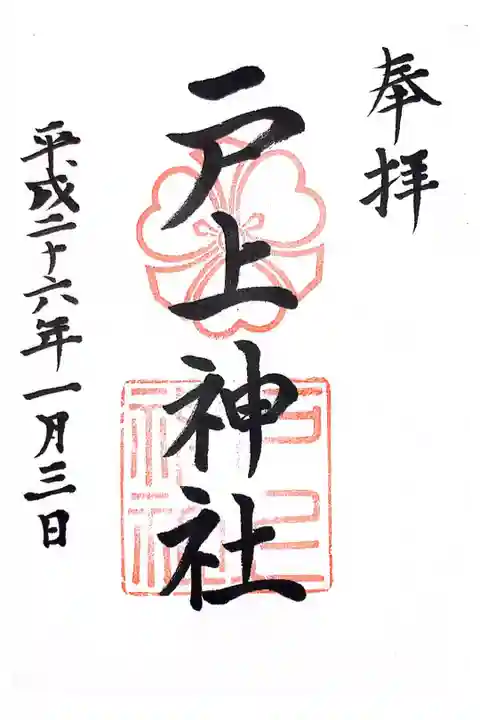 奉拝
戸上神社
戸上
神社
平成二十六年一月三日